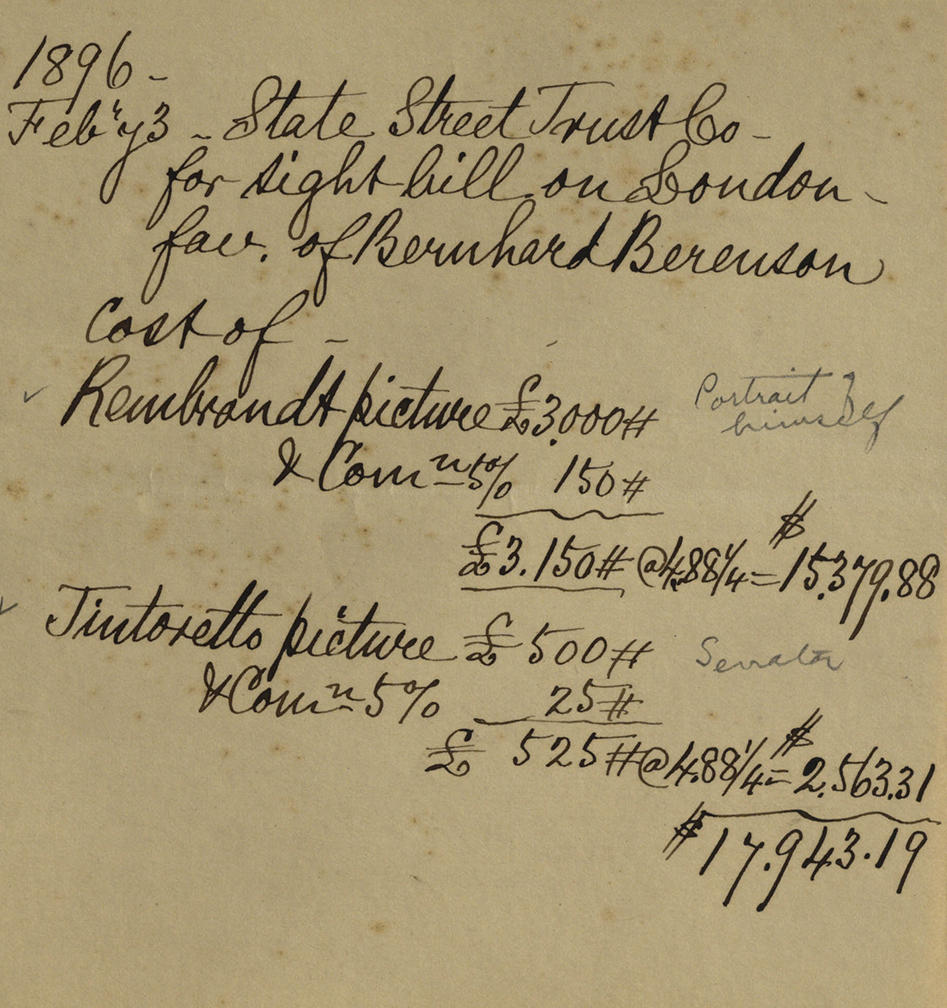 1896 -
Feb'y 3 - State Street Trust Co -
for sight bill on London -
fav. of Bernhard Berenson
Cost of -
Rembrandt picture £3.000# Portrait of
himself
& Comn 5% 150#
£3.150# @ 4.88 1/4 = $15.379.88
Tintoretto picture £ 500# Senator
& Comn 5% 25#
£ 525# @ 4.88 1/4 = $2.563.31
$17.943.19